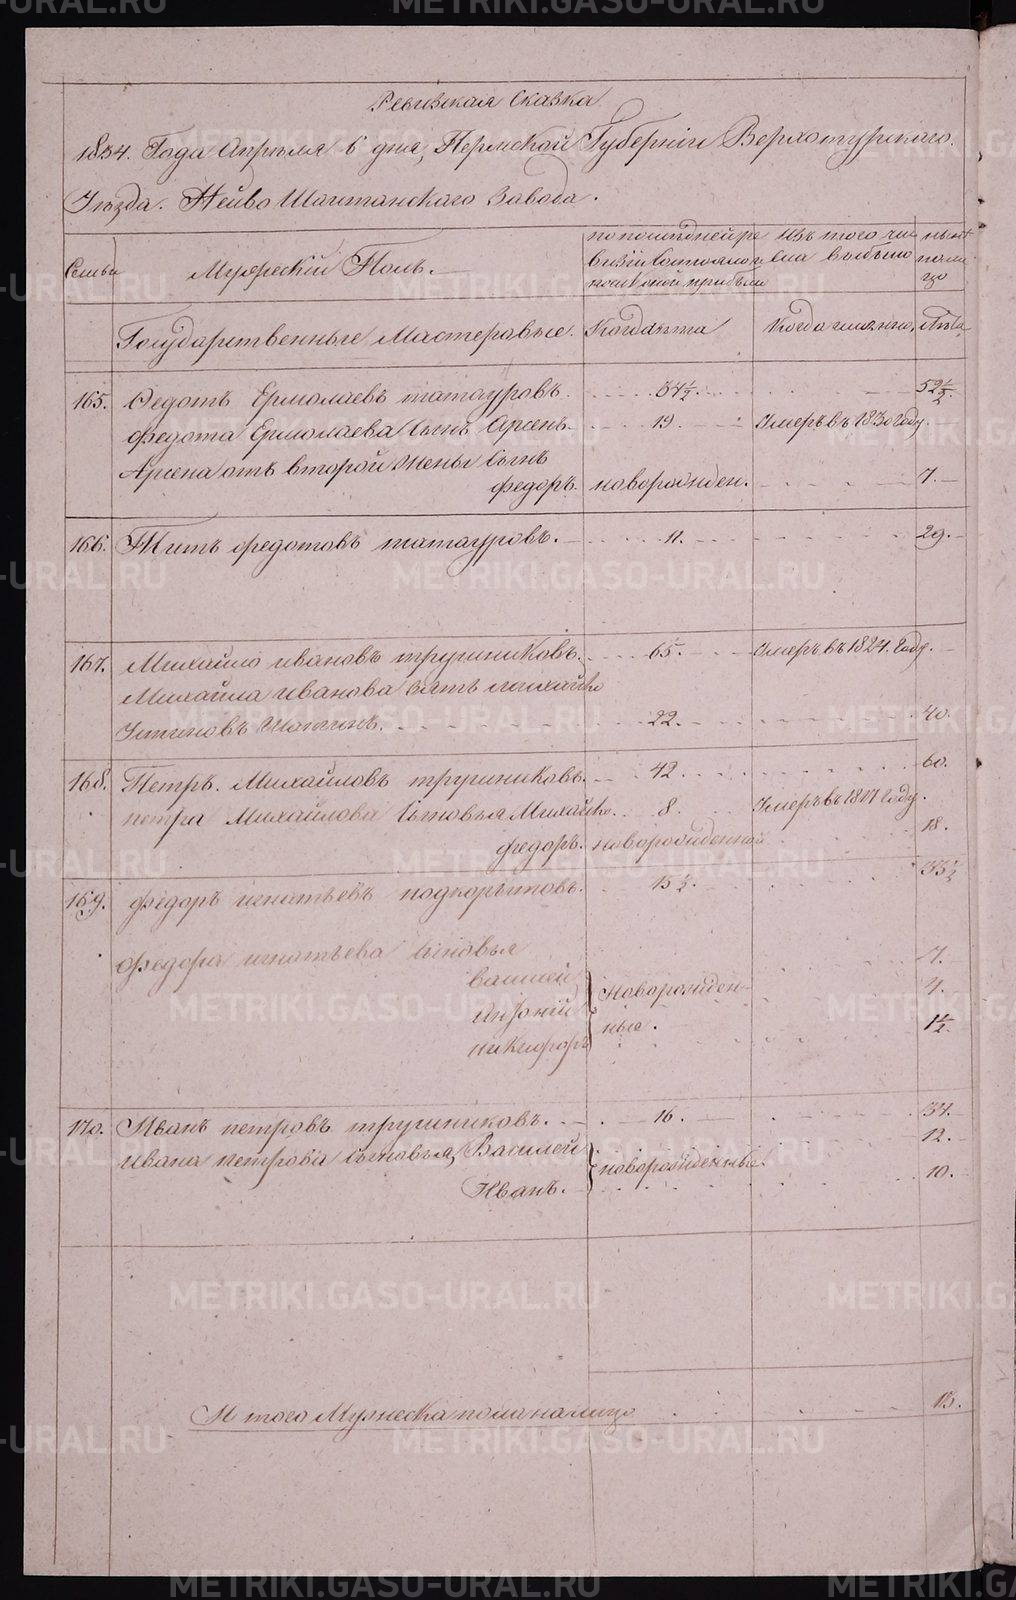 Ревизская Сказка
1834. Года Апреля 6 дня, Пермской Губернiи Верхотурскаго.
Уѣзда. Нейво Шаитанскаго Завода.
Семьи
Мужескiй Полъ.
по последней ре
визiи состояло и
после оной прибыло
Изъ того чи
сла выбыло
ныне
на ли
цо
Государственные Мастеровые.
Когда лета
Когда именно.
Лѣта
165. Федотъ Ермолаевъ татауровъ. 34½. 52½.
Федота Ермолаева Сынъ Арсенъ. 19. Умеръ въ 1830 году.
Арсена отъ второй Жены Сынъ
Федоръ. новорожден. 7.
166. Титъ Федотовъ татауровъ. 11. 29.
167. Михайло ивановъ трушниковъ. 65. Умеръ въ 1824. году.
Михайла иванова зять михайло
Устиновъ Шапшинъ. 22. 40.
168. Петръ. Михайловъ трушниковъ. 42 60.
петра Михайлова Сыновья Михайло. 8 Умеръ въ 1817 году.
федоръ. новорожденной 18.
169. Федоръ игнатьевъ подкорытовъ. 15½. 33½
Федора игнатьева Сыновья
васили 7.
Афонiй Новорожден- 4.
никифоръ ные. 1½.
170. Иванъ петровъ трушниковъ. 16. 34.
Ивана петрова Сыновья, Василей 12.
Иванъ. новорожденные. 10.
И того Мужеска пола налицо 13.
METRIKI.GASO-URAL.RU